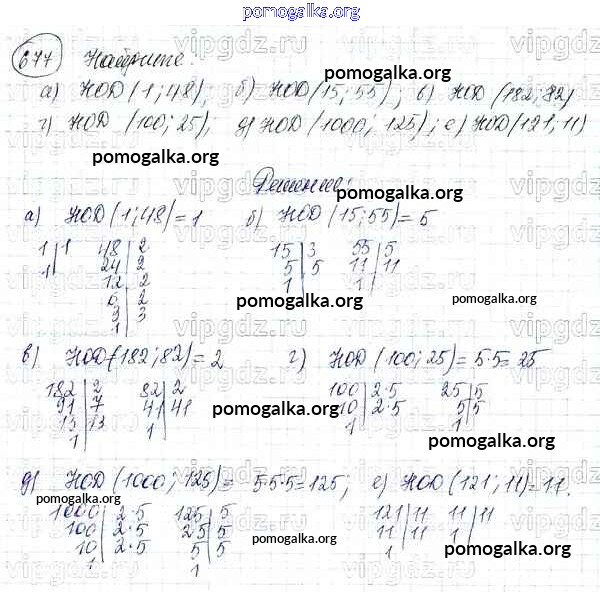 pomogalka.org
677 Найдите:
а) НОД (1; 48); б) НОД (15; 55); в) НОД (182; 82)
г) НОД (100; 25); д) НОД (1000; 125); е) НОД (121; 11)
Решение:
а) НОД (1; 48) = 1 б) НОД (15; 55) = 5
1 | 1 48 | 2 15 | 3 55 | 5
1 | 24 | 2 5 | 5 11 | 11
12 | 2 1 | 1 |
6 | 2
3 | 3
1 |
в) НОД (182; 82) = 2 г) НОД (100; 25) = 5·5 = 25
182 | 2 82 | 2 100 | 2·5 25 | 5
91 | 7 41 | 41 10 | 2·5 5 | 5
13 | 13 1 | 1 | 1 |
1 |
д) НОД (1000; 125) = 5·5·5 = 125; е) НОД (121; 11) = 11.
1000 | 2·5 125 | 5 121 | 11 11 | 11
100 | 2·5 25 | 5 11 | 11 1 |
10 | 2·5 5 | 5 1 |
1 | 1 |
vipgdz.ru
pomogalka.org